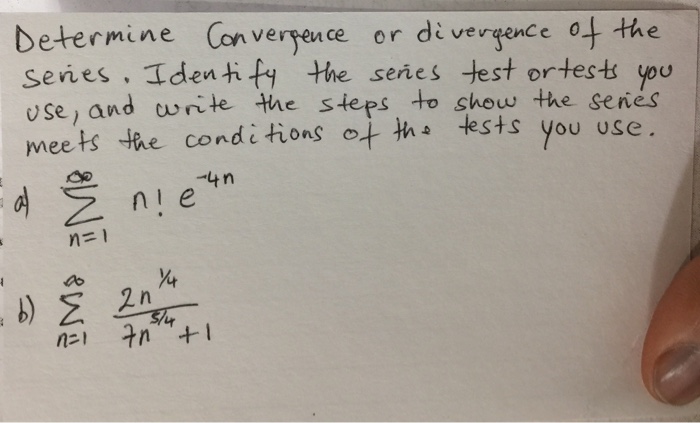 Determine Convergence or divergence of the
series. Identify the series test or tests you
use, and write the steps to show the series
meets the conditions of the tests you use.
a) ∞ Σ n=1 n! e^-4n
b) ∞ Σ n=1 2n^1/4 / 7n^5/4 + 1